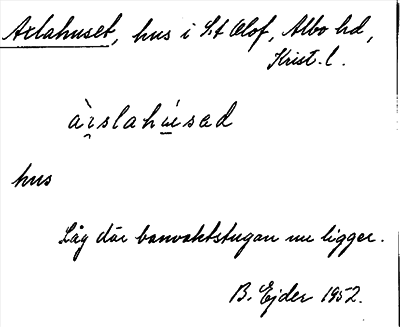 Axlahuset, hus i S:t Olof, Albo hd,
Krist. l.
àʂslahúsəd
hus
Låg där banvaktstugan nu ligger.
B. Ejder 1952.